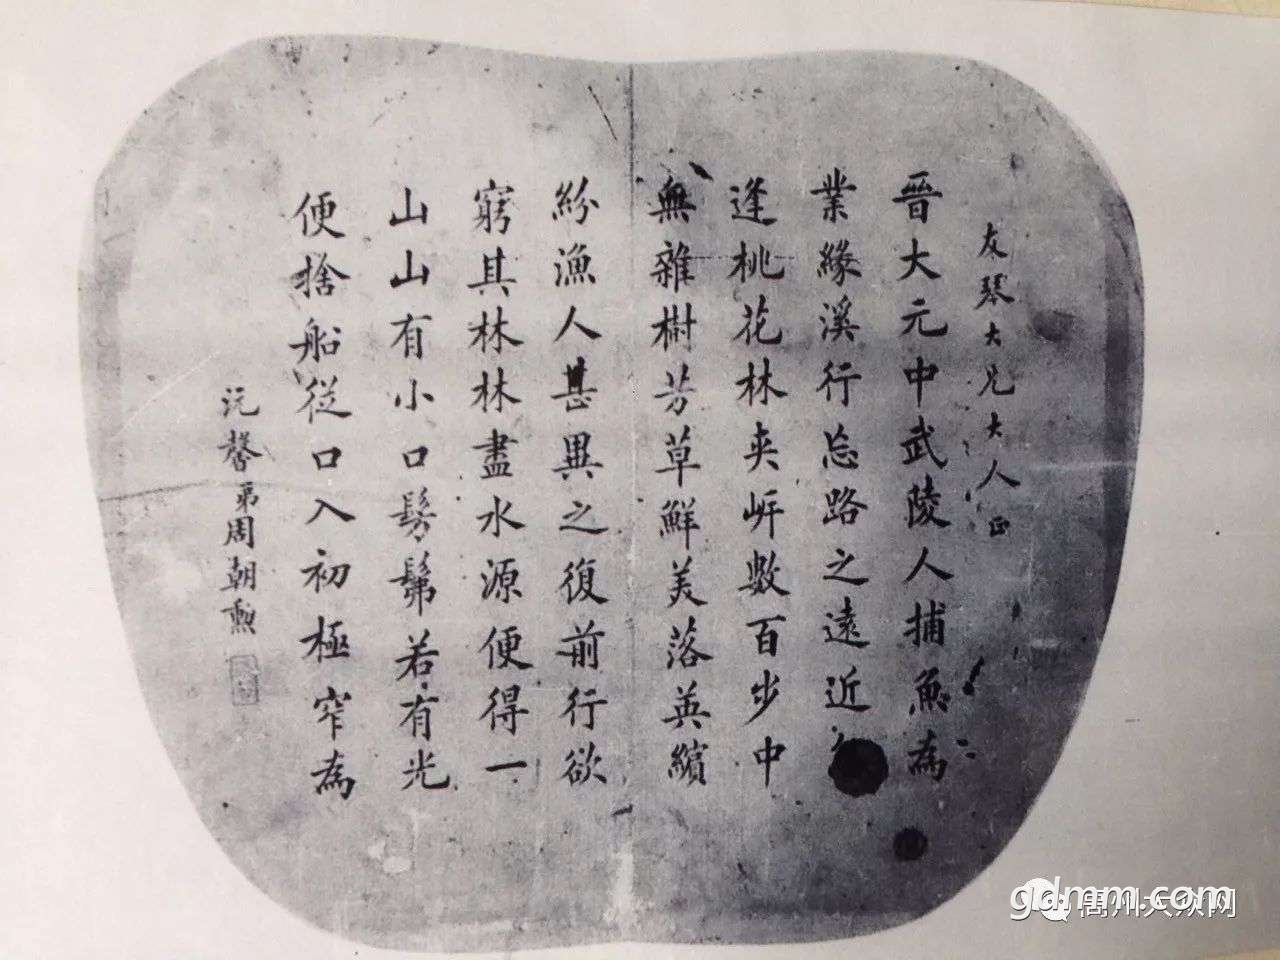 友琴大兄大人正
晉大元中武陵人捕魚為
業緣溪行忘路之遠近
逢桃花林夾岸數百步中
無雜樹芳草鮮美落英繽
紛漁人甚異之復前行欲
窮其林林盡水源便得一
山山有小口髣髴若有光
便捨船從口入初極窄為
沅馨弟周朝勲
gdmm.com
高州大众网